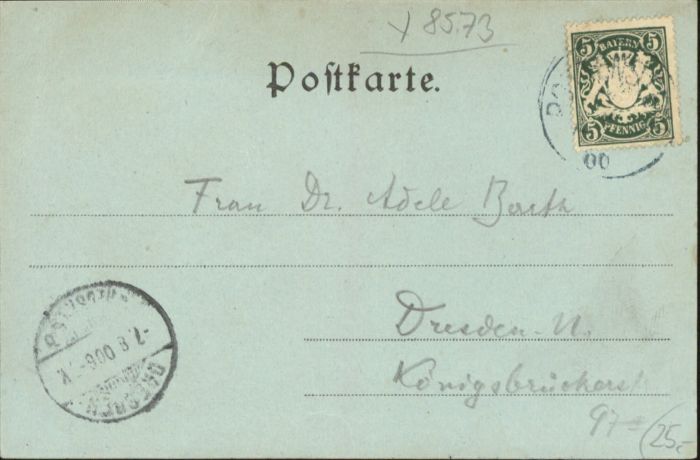 x 8573
Postkarte.
5 BAYERN 5
5 PFENNIG 5
00
Frau Dr. Adele Barth
Dresden-N.
Königsbrückerstr
97
25,-
-7.8.00